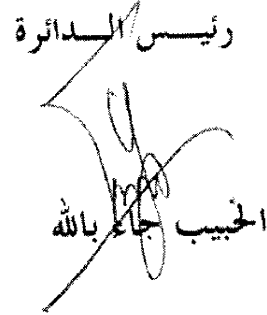 رئيس الدائرة
الحبيب جاء بالله